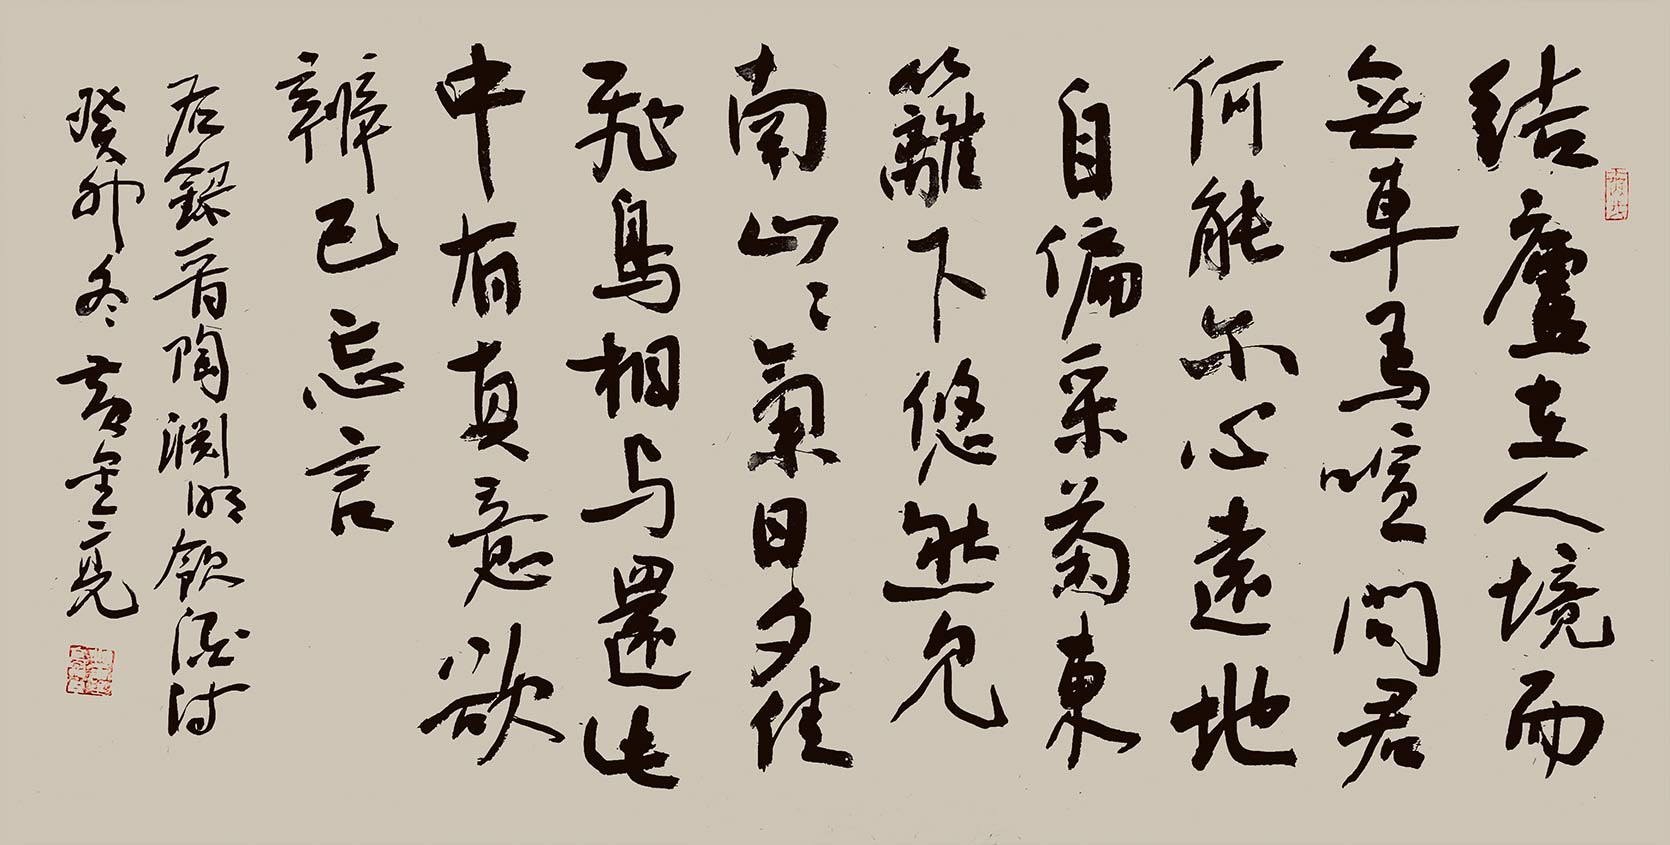 結廬在人境而
無車馬喧問君
何能尔心遠地
自偏采菊東
籬下悠然見
南山山氣日夕佳
飛鳥相与還此
中有真意欲
辨已忘言
右錄晉陶淵明飲酒詩
癸卯冬黄金亮